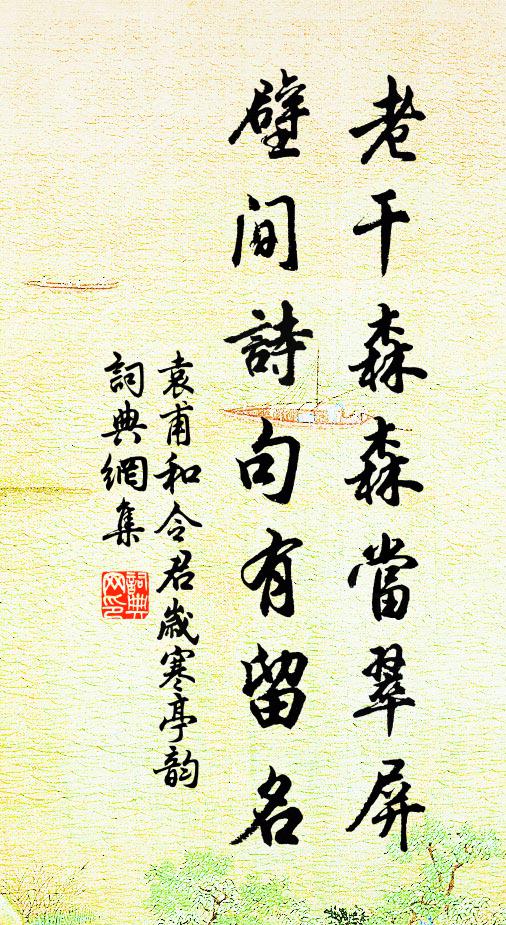 老干森森當翠屏
壁间詩句有留名
袁甫和令君歲寒亭韵
詞典網集
詞典网印